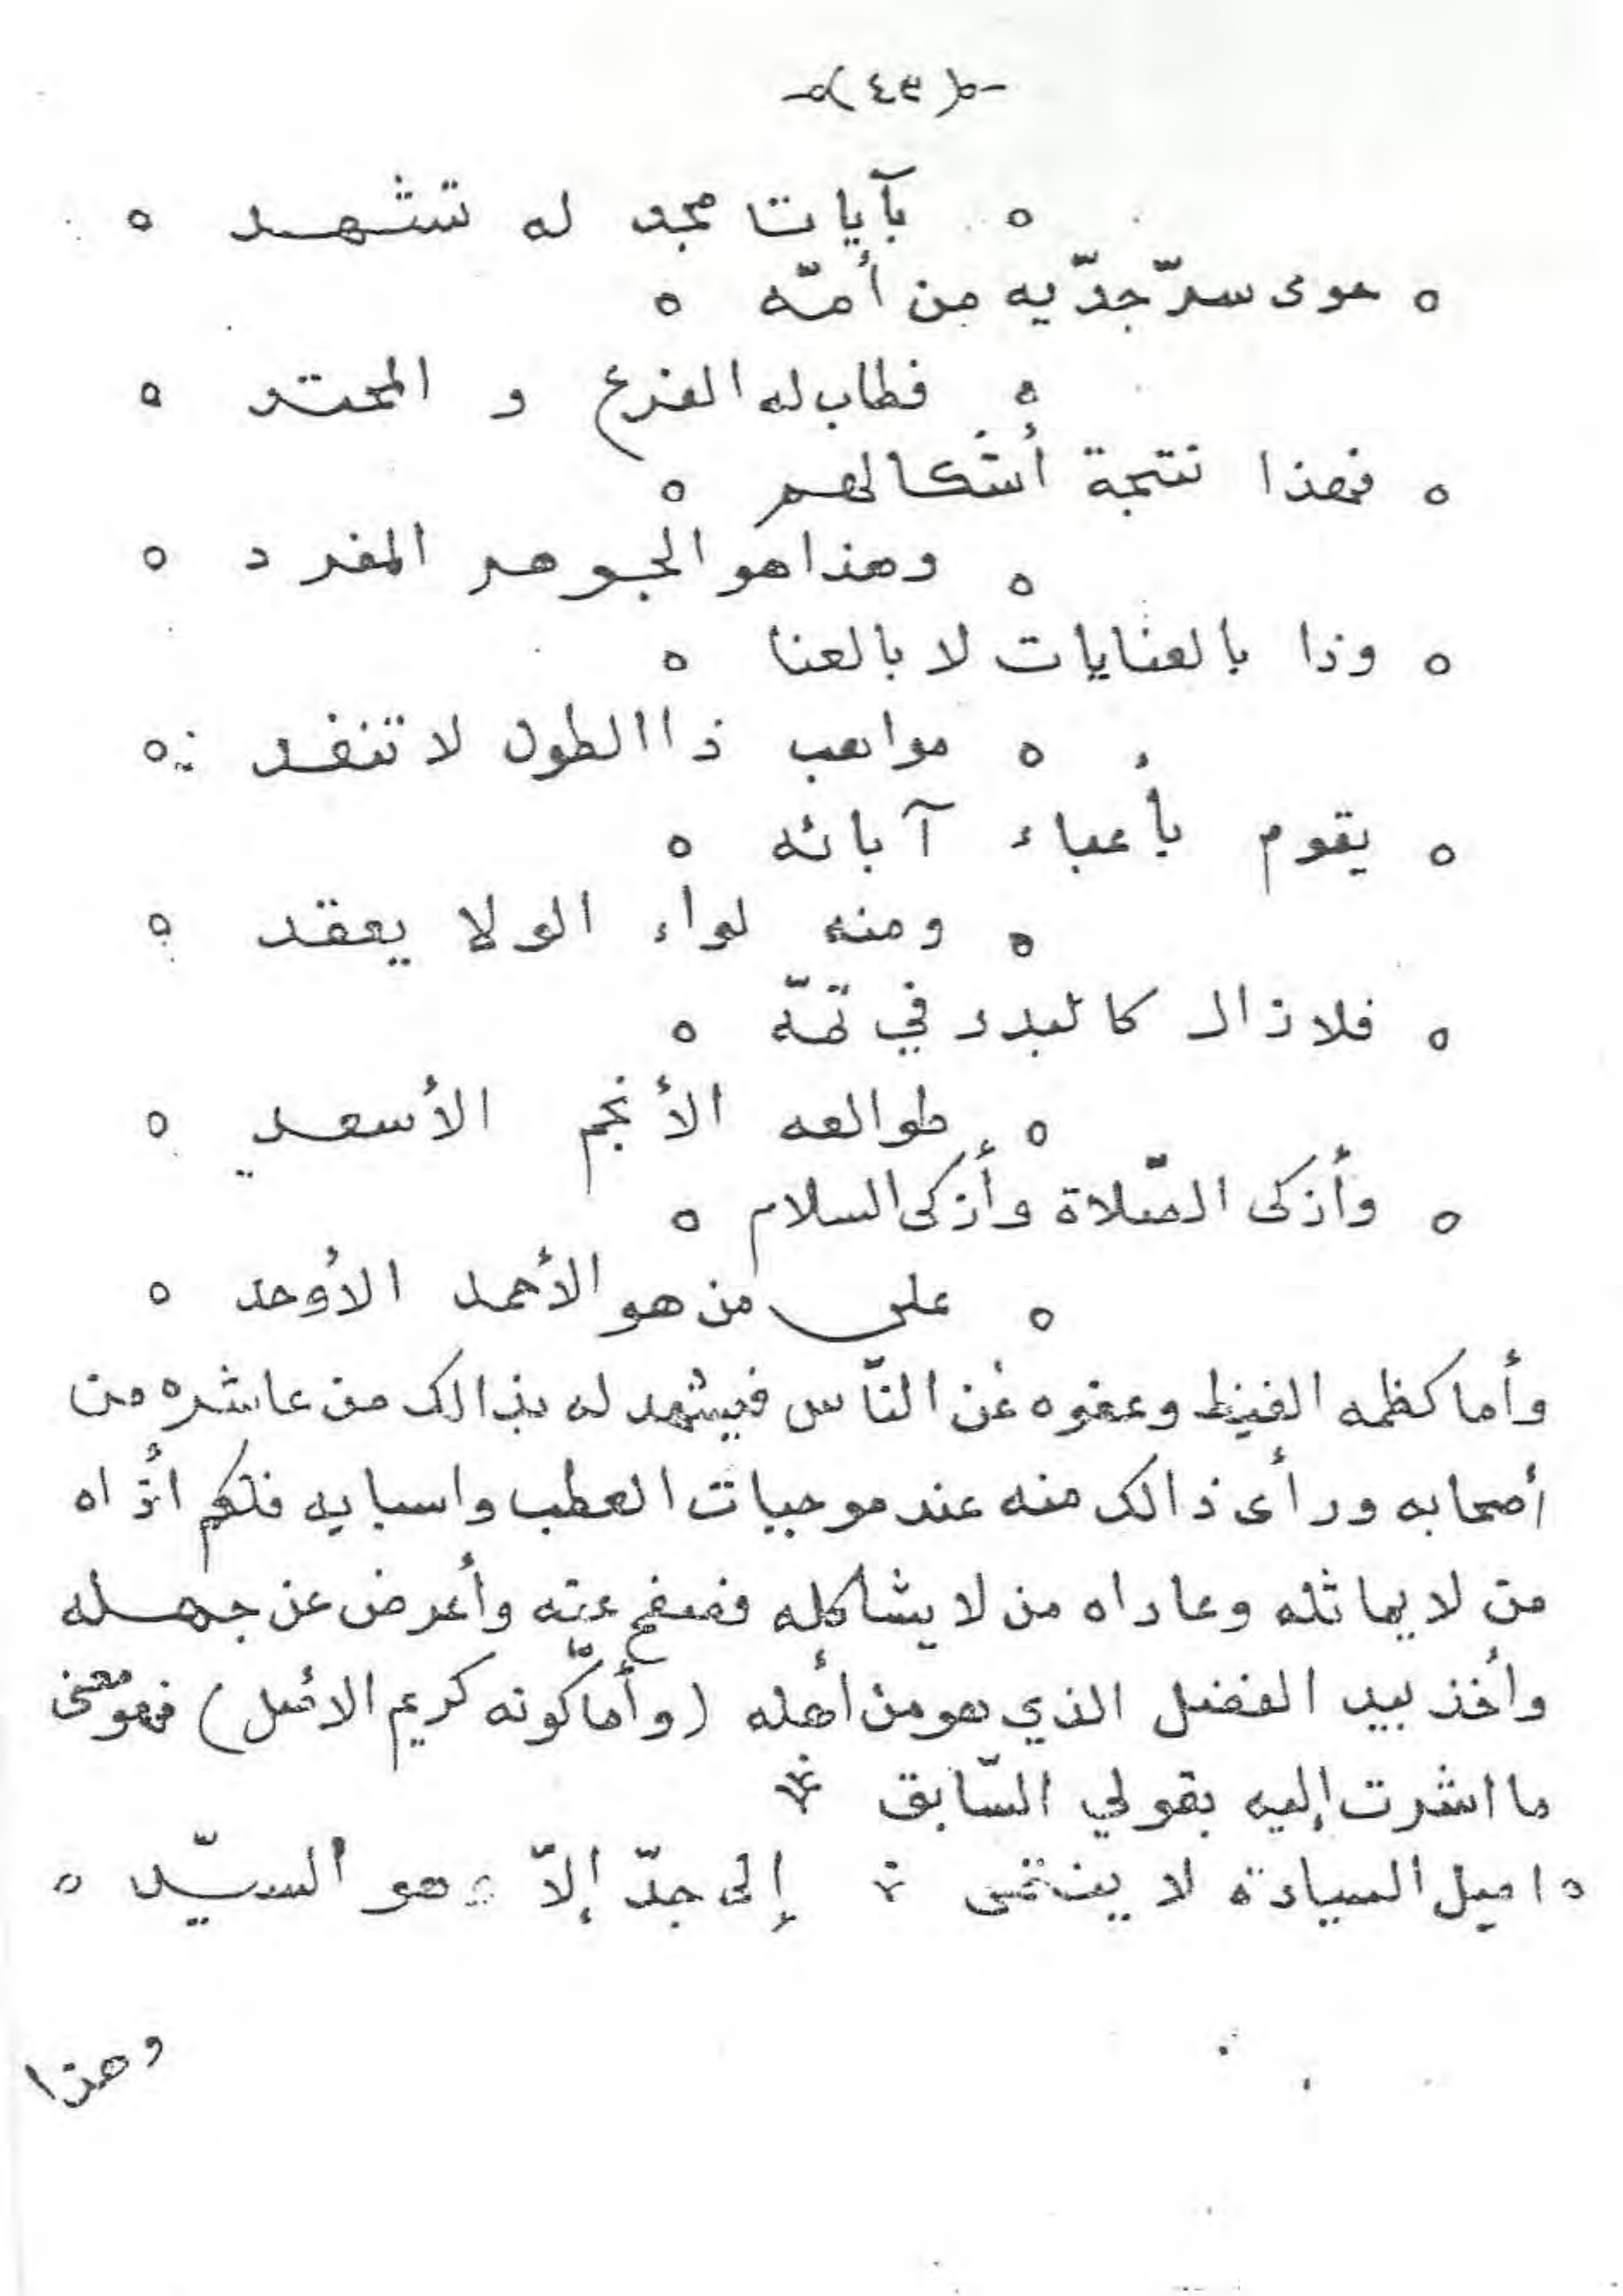 -ه(٤٣)ه-
ه بآيات مجد له تشهد ه
ه حوى سرّ جدّيه من أمّه ه
ه فطاب له الفرع و المحتد ه
ه فهذا نتجة أشكالهم ه
ه وهذا هو الجوهر المفرد ه
ه وذا بالعنايات لا بالعنا ه
ه مواهب ذا الطول لا تنفد ه
ه يقوم بأعباء آبائه ه
ه ومنه لواء الولا يعقد ه
ه فلا زال كالبدر في تمّه ه
ه طوالعه الأنجم الأسعد ه
ه وأزكى الصّلاة وأزكى السلام ه
ه على من هو الأحمد الأوحد ه
وأما كظمه الغيظ وعفوه عن النّاس فيشهد له بذالك من عاشره من
أصحابه ورأى ذالك منه عند موجبات العطب واسبابه فلكم اذاه
من لا يماثله وعاداه من لا يشاكله فصفح عنه وأعرض عن جهله
وأخذ بيد الفضل الذي هو من أهله (وأمّا كونه كريم الاصل) فهو معنى
ما اشرت إليه بقولي السّابق
ه اصيل السيادة لا ينتمى إلى جدّ إلاّ وهو السيّد ه
وهذا